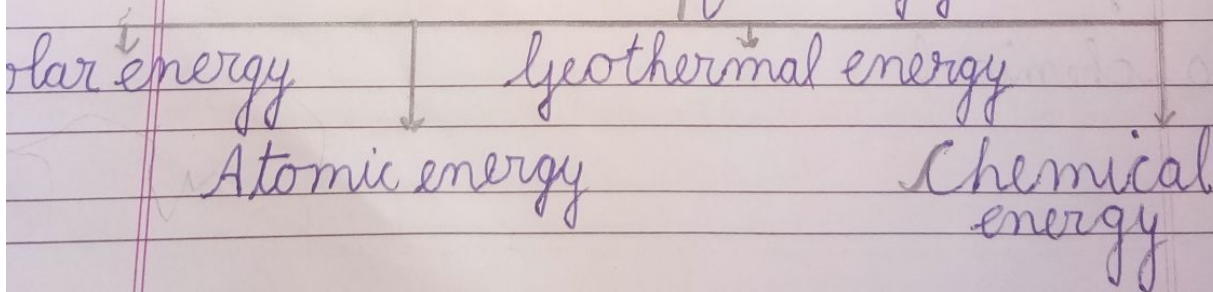 olar energy Geothermal energy
Atomic energy Chemical
energy